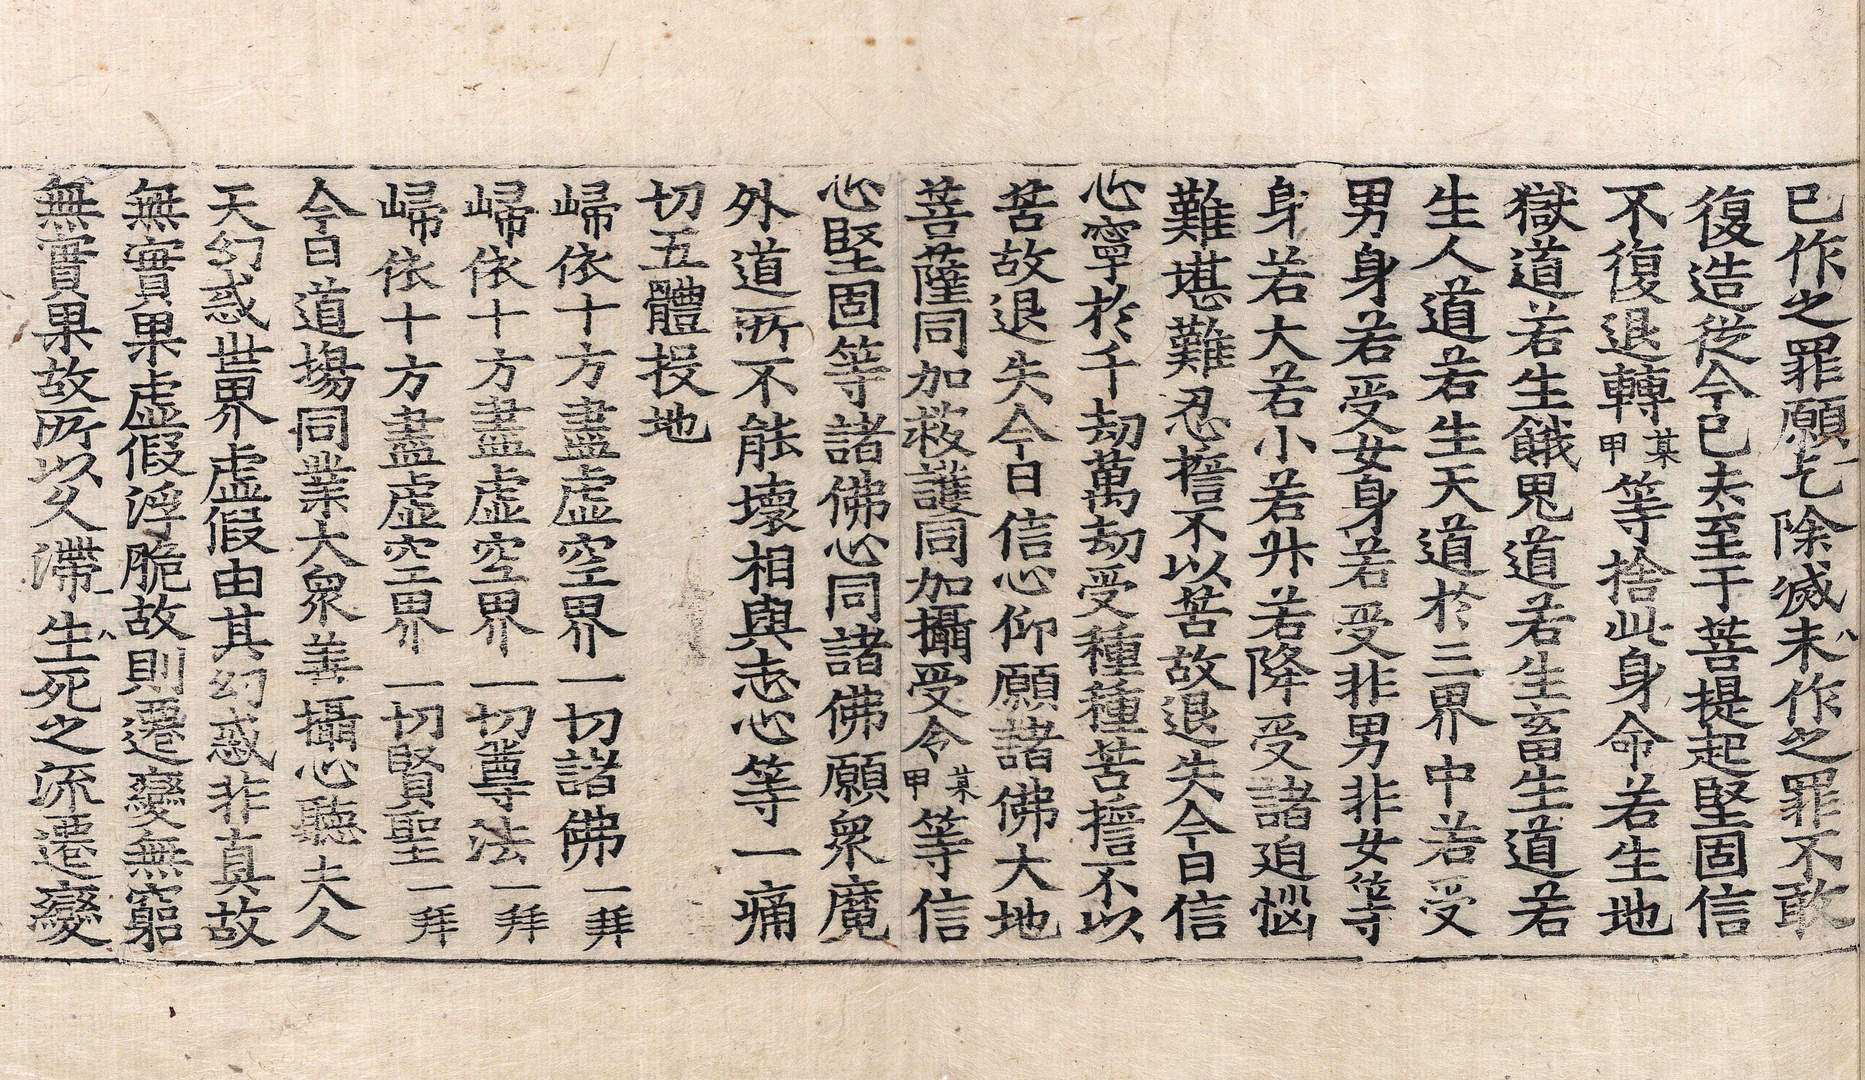 已作之罪願乞除滅未作之罪不敢
復造從今已去至于菩提起堅固信
不復退轉某甲等捨此身命若生地
獄道若生餓鬼道若生畜生道若
生人道若生天道於三界中若受
男身若受女身若受非男非女等
身若大若小若升若降受諸迫惱
難堪難忍擔不以苦故退失今日信
心寧於千劫萬劫受種種苦擔不以
苦故退失今日信心仰願諸佛大地
菩薩同加救護同加攝受令某甲等信
心堅固等諸佛心同諸佛願衆魔
外道所不能壞相與志心等一痛
切五體投地
歸依十方盡虛空界一切諸佛一拜
歸依十方盡虛空界一切尊法一拜
歸依十方盡虛空界一切賢聖一拜
今日道場同業大衆善攝心聽夫人
天幻惑世界虛假由其幻惑非真故
無實果虛假浮脆故則遷變無窮
無實果故所以久滯生死之流遷變